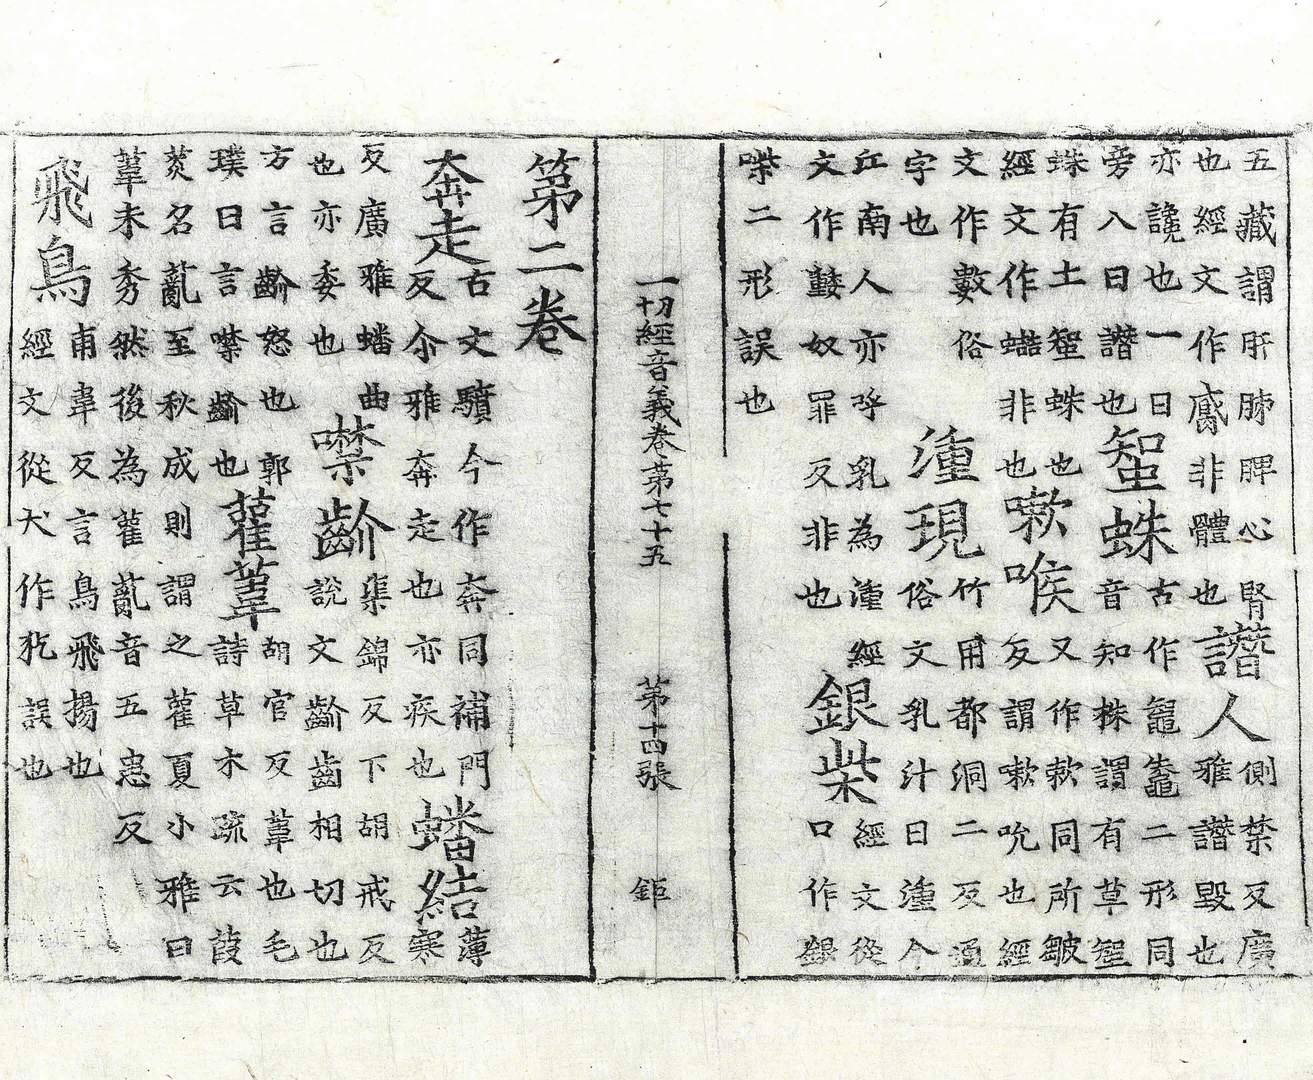 五藏謂肝肺脾心腎
也經文作膺非體也
譖人
側禁反廣
雅譖毀也
亦讒也一曰
旁入曰譖也
蜘蛛
古作鼅鼄二形同
音知株謂有草蜘
蛛有土蜘蛛也
經文作蟢非也
嗽喉
又作欶同所皺
反謂嗽吮也經
文作數俗
字也
湩現
竹用都洞二反通
俗文乳汁曰湩今
江南人亦呼乳為湩經
文作奴罪反非也
銀柴
經文從
口作
㗫二形誤也
一切經音義卷第七十五 第十四張 鉅
第二卷
奔走
古文驞今作奔同補門
反尒雅奔走也亦疾也
蟠結
薄
寒
反廣雅蟠曲
也亦委也
噤齘
渠錦反下胡戒反
說文齘齒相切也
方言齘怒也郭
璞曰言噤齘也
雚葦
胡官反葦也毛
詩草木疏云葭
菼名薍至秋成則謂之雚夏小雅曰
葦未秀然後為雚薍音五患反
飛鳥
甫韋反言鳥飛揚也
經文從犬作犻誤也